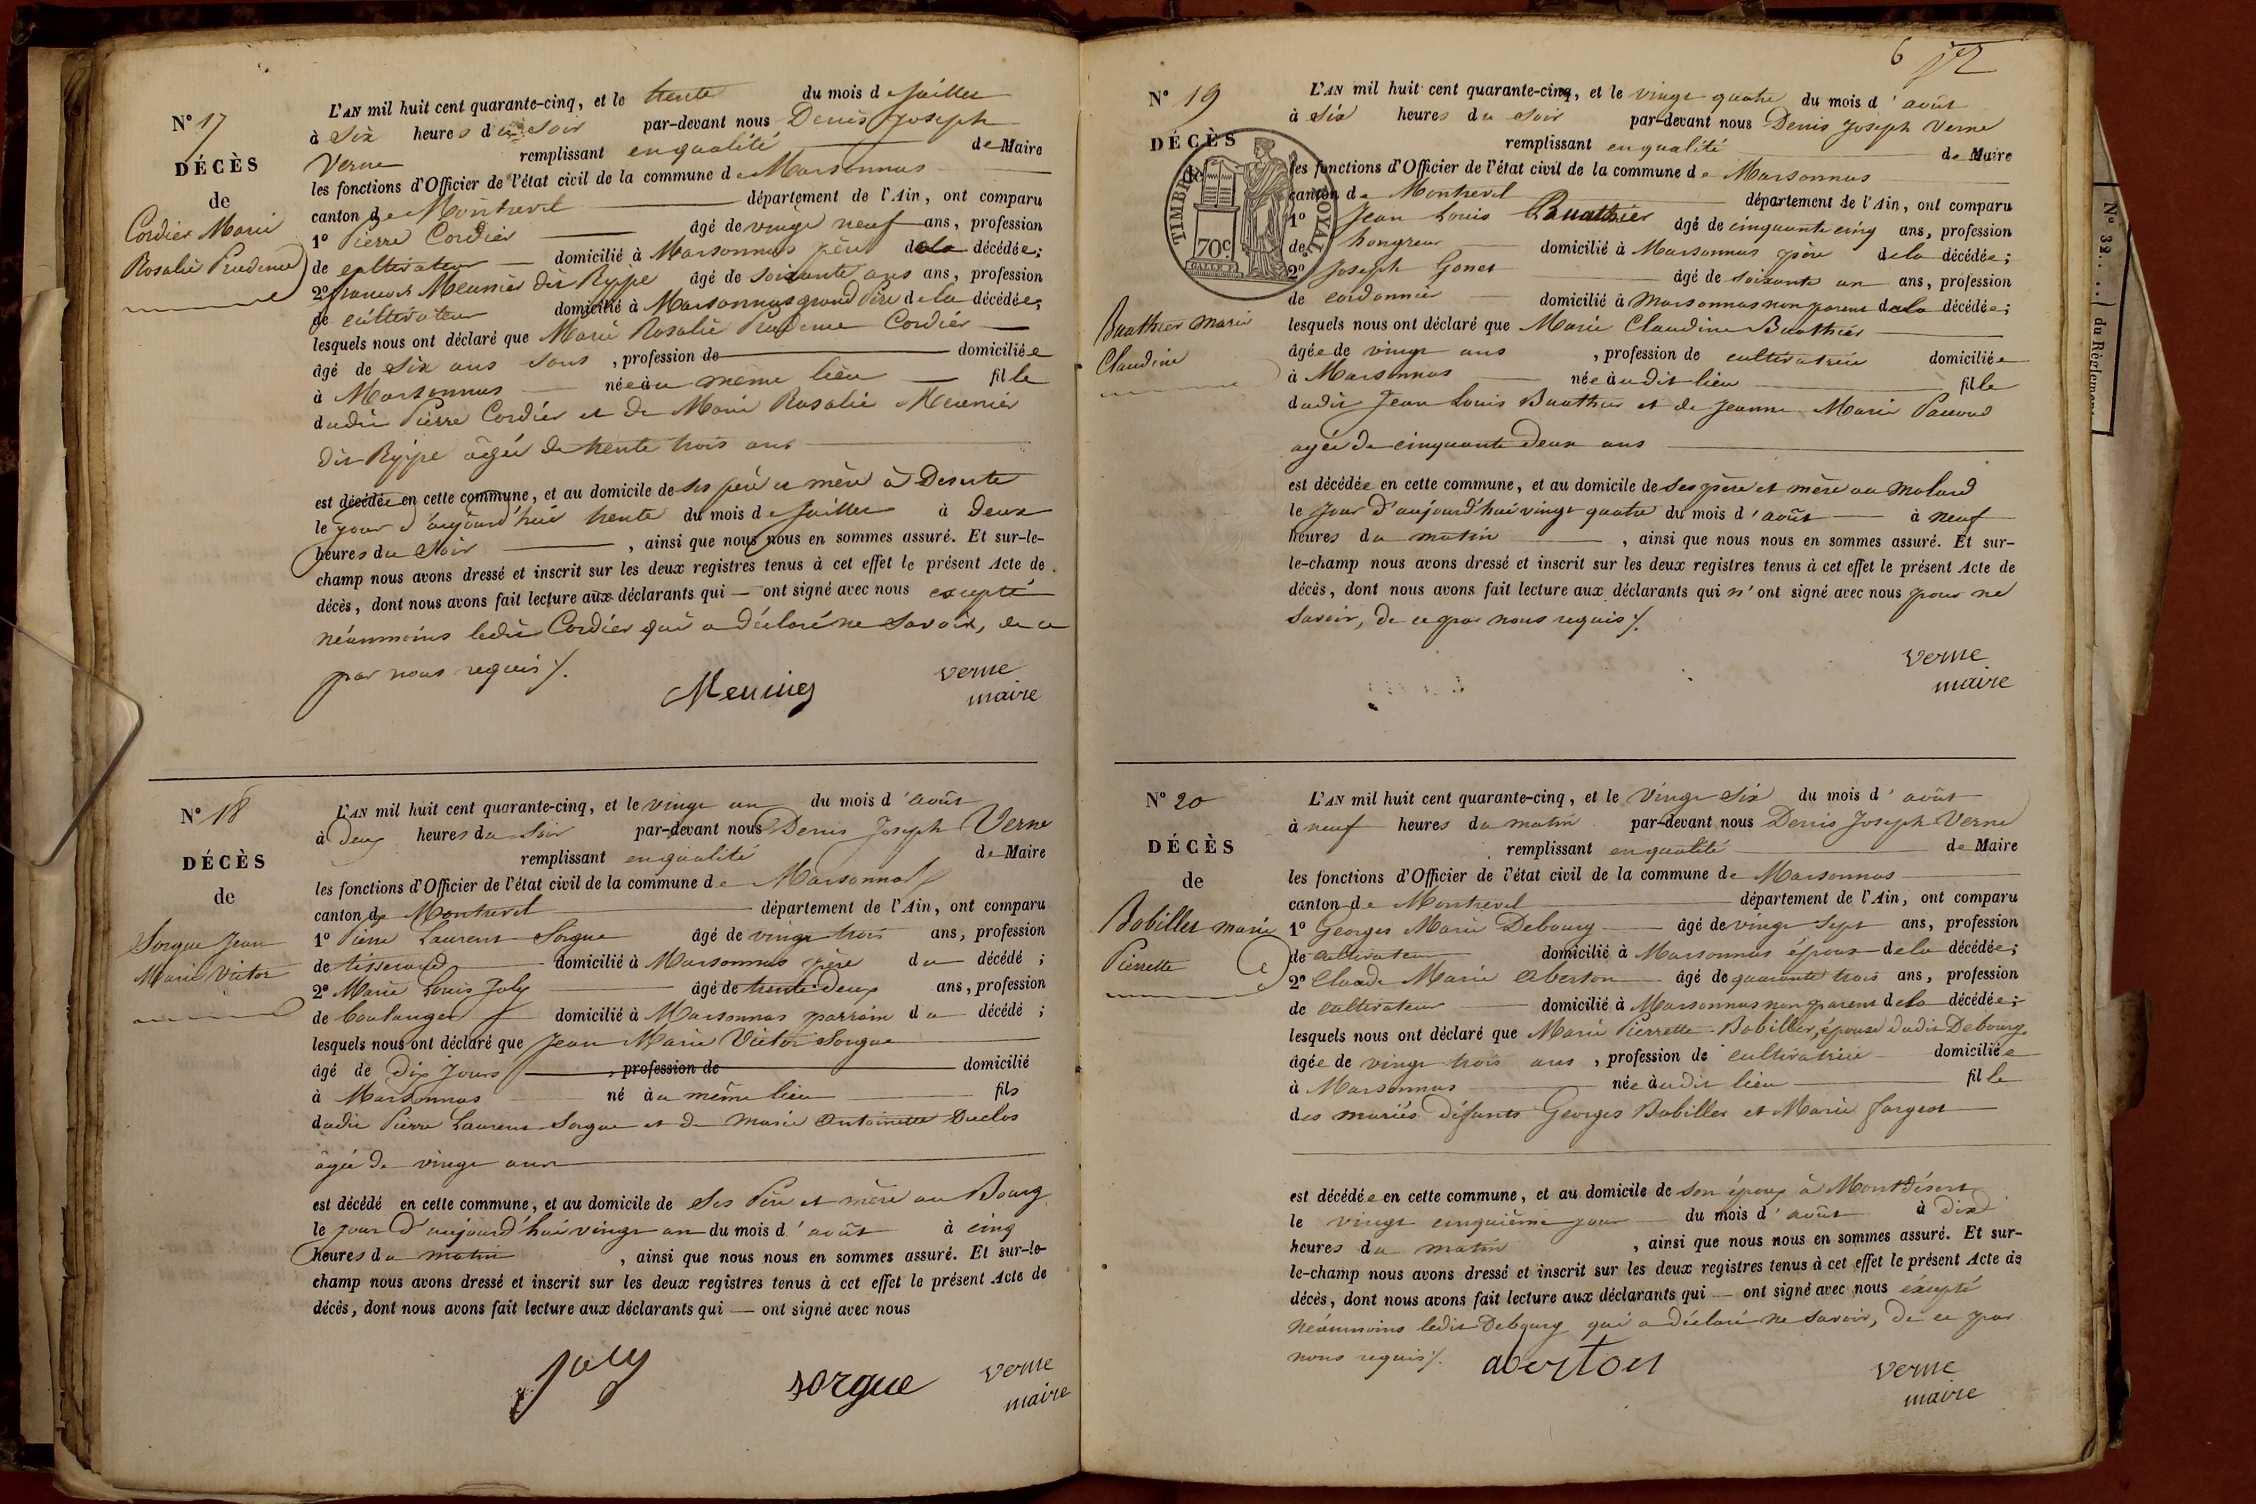 N° 17
DÉCÈS
de
Cordier Marie
Rosalie Prudence
L'AN mil huit cent quarante-cinq, et le trente du mois de Juillet
à Six heures du Soir par-devant nous Denis Joseph
Verne remplissant en qualité de Maire
les fonctions d'Officier de l'état civil de la commune de Marsonnas
canton de Montrevel département de l'Ain, ont comparu
1° Pierre Cordier âgé de vingt neuf ans, profession
de cultivateur domicilié à Marsonnas père de la décédée;
2° francois Meunier dit Rippe âgé de Soixante ans ans, profession
de cultivateur domicilié à Marsonnas grand Père de la décédée;
lesquels nous ont déclaré que Marie Rosalie Prudence Cordier
âgé de Six ans sans , profession de domiciliée
à Marsonnas née au même lieu fille
dudit Pierre Cordier et de Marie Rosalie Meunier
dit Rippe âgée de trente trois ans
est décédée en cette commune, et au domicile de ses père et mère à
le jour d'aujourd'hui trente du mois de Juillet à Deux
heures du Soir , ainsi que nous nous en sommes assuré. Et sur-le-
champ nous avons dressé et inscrit sur les deux registres tenus à cet effet le présent Acte de
décès, dont nous avons fait lecture aux déclarants qui — ont signé avec nous excepté
néanmoins ledit Cordier qui a déclaré ne Savoir, de ce
par nous requis /.
Meunier
verne
maire
N° 18
DÉCÈS
de
Sorgue Jean
Marie Victor
L'AN mil huit cent quarante-cinq, et le vingt un du mois d'août
à Deux heures du Soir par-devant nous Denis Joseph Verne
remplissant en qualité de Maire
les fonctions d'Officier de l'état civil de la commune de Marsonnas
canton de Montrevel département de l'Ain, ont comparu
1° Pierre Laurent Sorgue âgé de vingt trois ans, profession
de tisserand domicilié à Marsonnas père du décédé ;
2° Marie Louis Joly âgé de trente Deux ans, profession
de boulanger domicilié à Marsonnas parrain du décédé ;
lesquels nous ont déclaré que Jean Marie Victor Sorgue
âgé de Dix Jours , profession de domicilié
à Marsonnas né au même lieu fils
dudit Pierre Laurent Sorgue et de Marie Antoinette Duclos
âgée de vingt ans
est décédé en cette commune, et au domicile de Ses Père et mère au Bourg
le jour d'aujourd'hui vingt un du mois d'août à cinq
heures du matin , ainsi que nous nous en sommes assuré. Et sur-le-
champ nous avons dressé et inscrit sur les deux registres tenus à cet effet le présent Acte de
décès, dont nous avons fait lecture aux déclarants qui — ont signé avec nous
Joly
sorgue
verne
maire
6
N° 19
DÉCÈS
de
TIMBRE ROYAL
70c
Buathier marie
Claudine
L'AN mil huit cent quarante-cinq, et le vingt quatre du mois d'août
à Six heures du Soir par-devant nous Denis Joseph Verne
remplissant en qualité de Maire
les fonctions d'Officier de l'état civil de la commune de Marsonnas
canton de Montrevel département de l'Ain, ont comparu
1° Jean Louis Buathier âgé de cinquante cinq ans, profession
de hongreur domicilié à Marsonnas père de la décédée;
2° Joseph Gonet âgé de soixante un ans, profession
de cordonnier domicilié à Marsonnas non parent de la décédée;
lesquels nous ont déclaré que Marie Claudine Buathier
âgée de vingt ans , profession de cultivatrice domiciliée
à Marsonnas née audit lieu fille
dudit Jean Louis Buathier et de Jeanne Marie
agée de cinquante Deux ans
est décédée en cette commune, et au domicile de Ses père et mère au Molard
le Jour D'aujourd'hui vingt quatre du mois d'août à neuf
heures du matin , ainsi que nous nous en sommes assuré. Et sur-
le-champ nous avons dressé et inscrit sur les deux registres tenus à cet effet le présent Acte de
décès, dont nous avons fait lecture aux déclarants qui n'ont signé avec nous pour ne
Savoir, de ce par nous requis /.
verne
maire
N° 20
DÉCÈS
de
Bobillet marie
Pierrette
L'AN mil huit cent quarante-cinq, et le vingt Six du mois d'août
à neuf heures du matin par-devant nous Denis Joseph Verne
remplissant en qualité de Maire
les fonctions d'Officier de l'état civil de la commune de Marsonnas
canton de Montrevel département de l'Ain, ont comparu
1° Georges Marie Debourg âgé de vingt Sept ans, profession
de cultivateur domicilié à Marsonnas époux de la décédée;
2° Claude Marie Aberton âgé de quarante trois ans, profession
de cultivateur domicilié à Marsonnas non parent de la décédée;
lesquels nous ont déclaré que Marie Pierrette Bobillet, épouse dudit Debourg
âgée de vingt trois ans , profession de cultivatrice domiciliée
à Marsonnas née audit lieu fille
des mariés défunts Georges Bobillet et Marie fargeot
est décédée en cette commune, et au domicile de Son époux à Montdésert
le vingt cinquième jour du mois d'août à dix
heures du matin , ainsi que nous nous en sommes assuré. Et sur-
le-champ nous avons dressé et inscrit sur les deux registres tenus à cet effet le présent Acte de
décès, dont nous avons fait lecture aux déclarants qui — ont signé avec nous éxcepté
Néanmoins ledit Debourg qui a déclaré ne Savoir, De ce par
nous requis /.
aberton
verne
maire
N° 32.... du Règlement